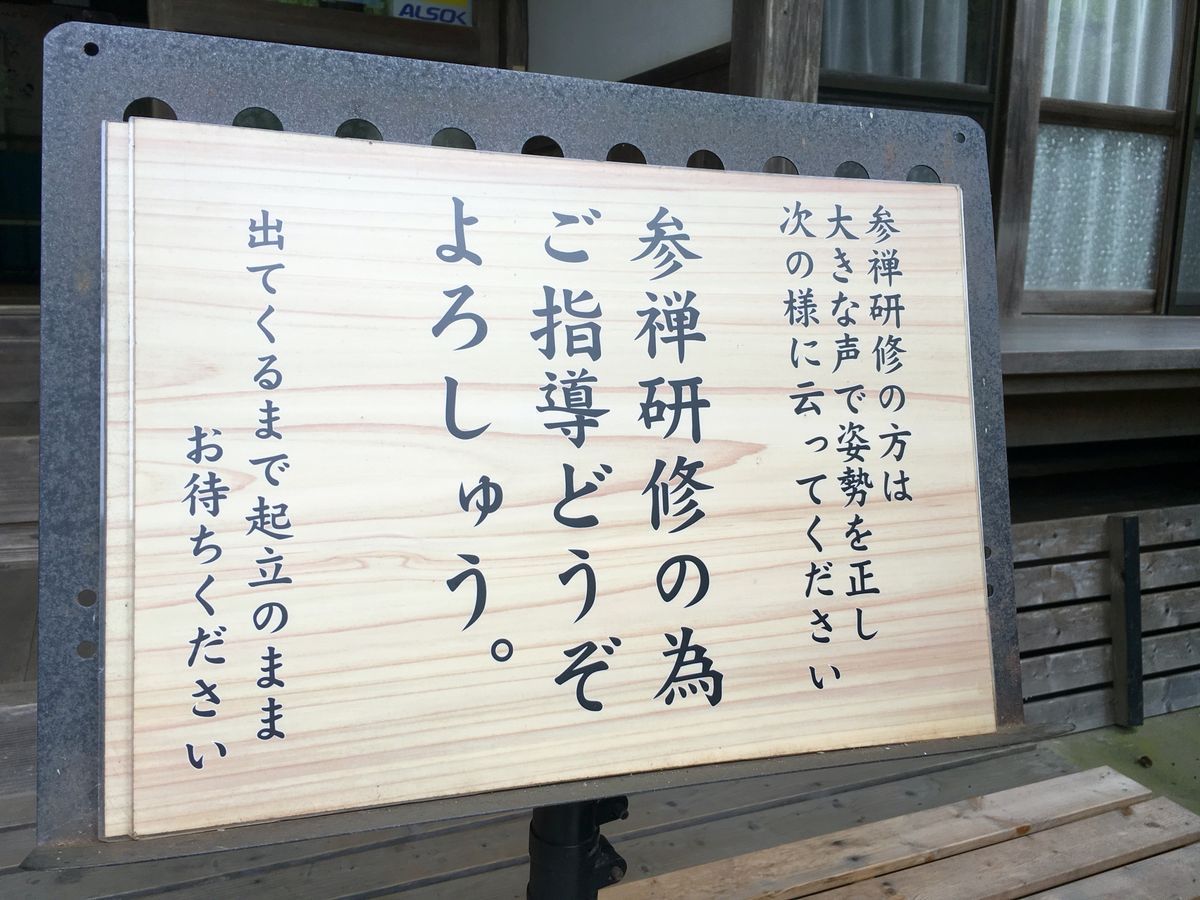 参禅研修の方は
大きな声で姿勢を正し
次の様に云ってください
参禅研修の為
ご指導どうぞ
よろしゅう。
出てくるまで起立のまま
お待ちください
ALSOK